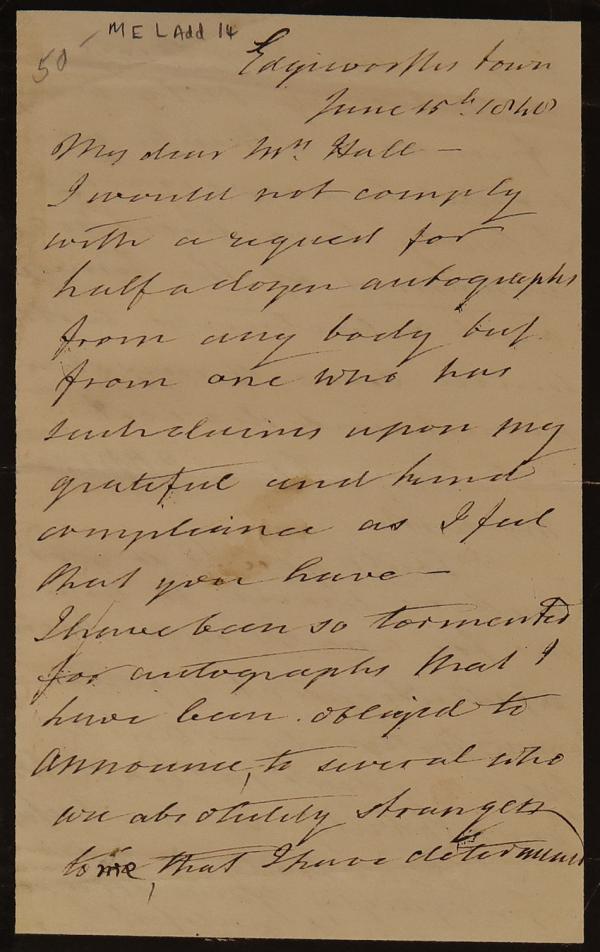 50 - M E L Add 14
Edgeworths town
June 15th. 1848
My dear Mrs. Hall -
I would not comply
with a request for
half a dozen autographs
from any body but
from one who has
such claims upon my
grateful and kind
compliance as I feel
that you have -
I have been so tormented
for autographs that I
have been obliged to
announce, to several who
are absolutely strangers
to me, that I have determined